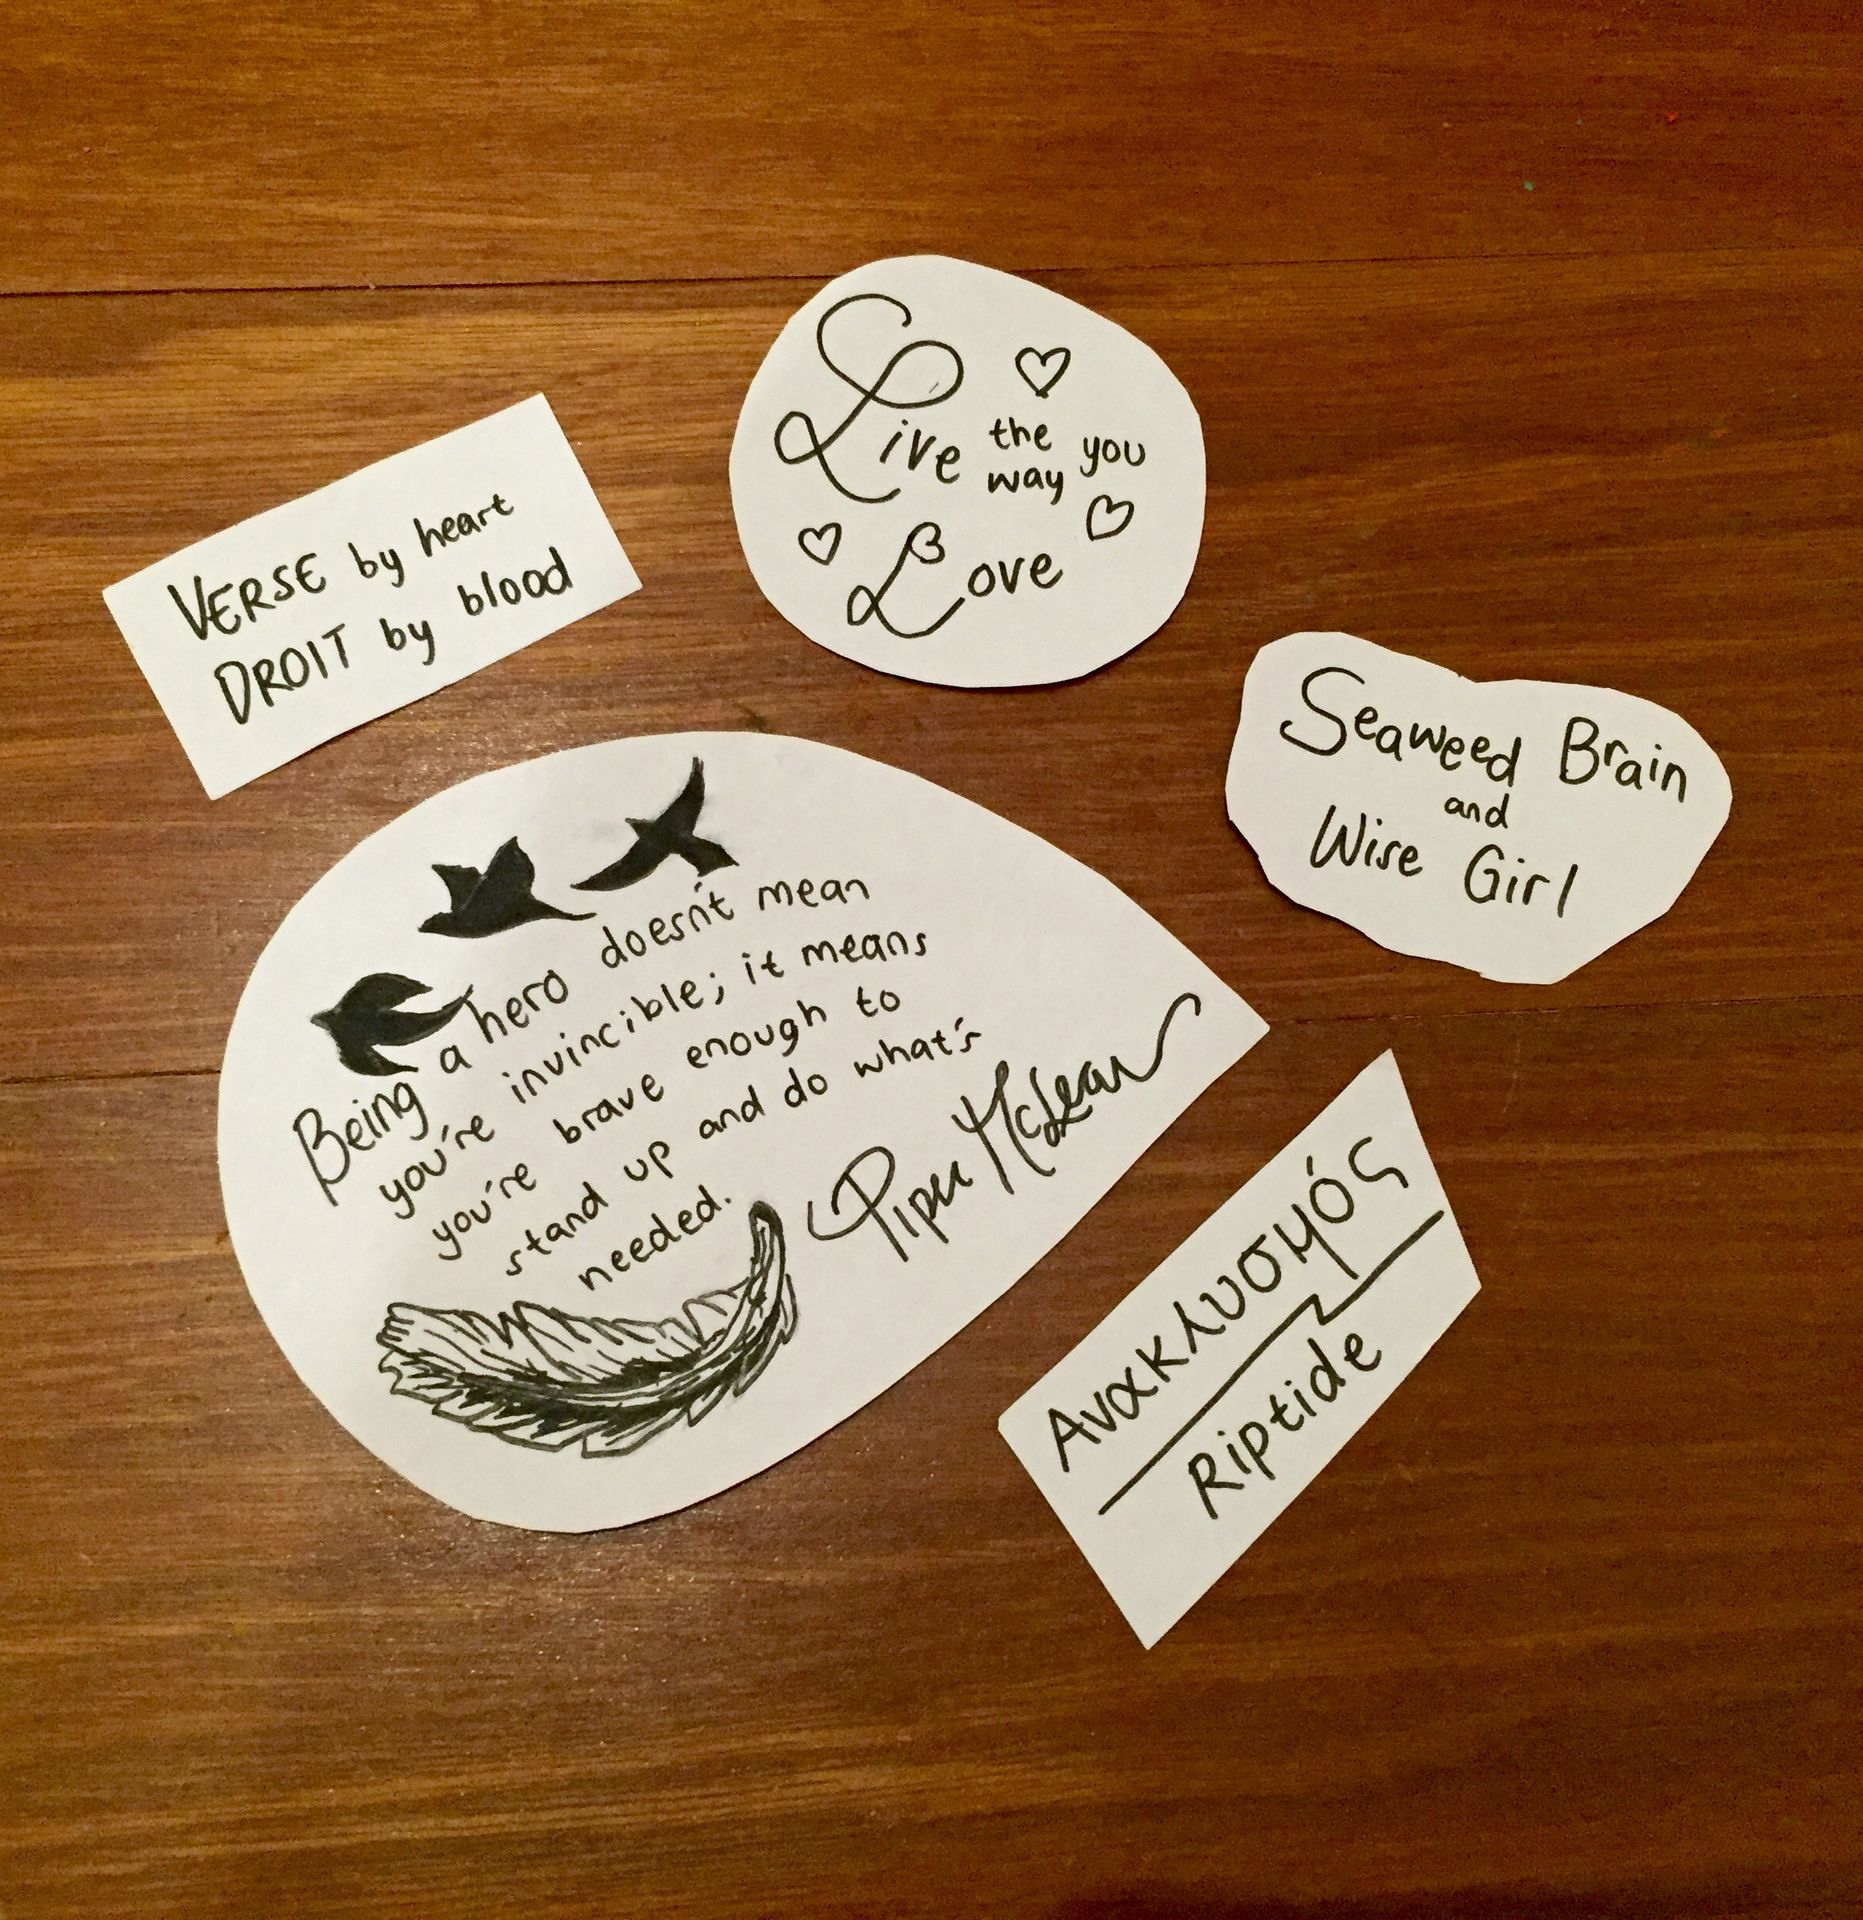 Live the way you
Love
VERSE by heart
DROIT by blood
Seaweed Brain
and
Wise Girl
Being a hero doesn't mean
you're invincible; it means
you're brave enough to
stand up and do what's
needed.
Piper McLean
Ανακλυσμός
Riptide